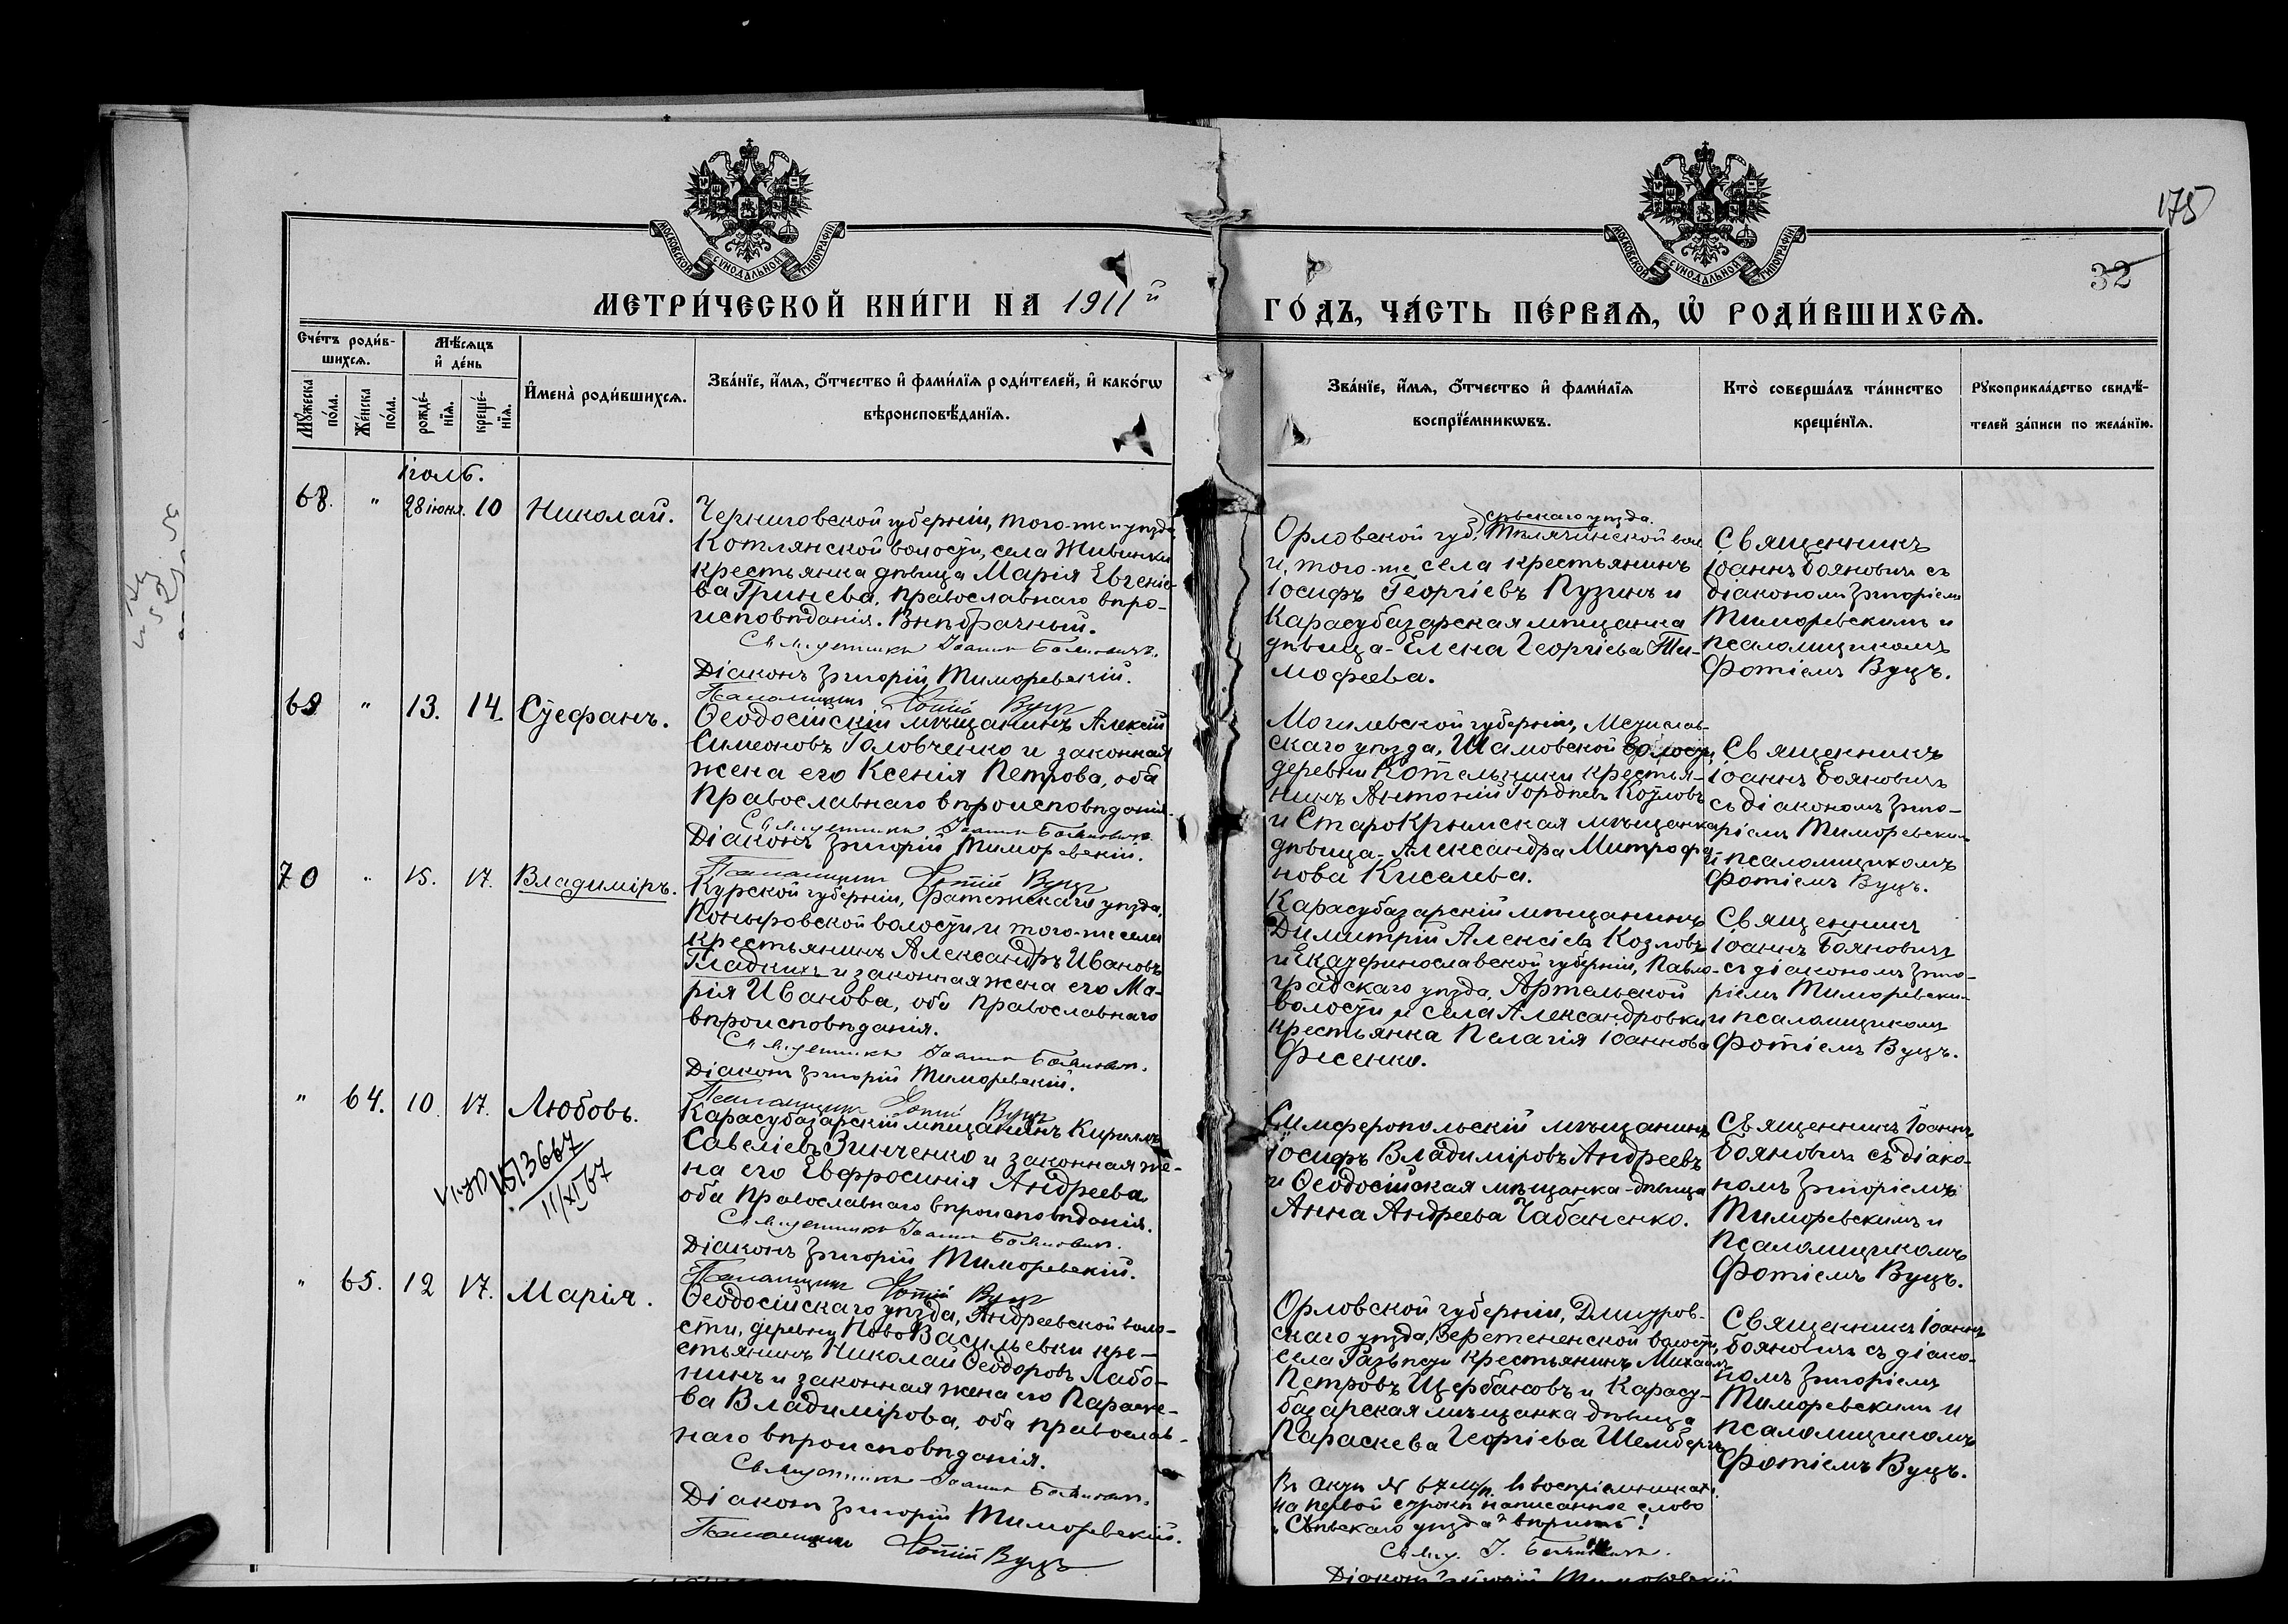 175
32
МОСКОВСКОЙ СУНОДАЛЬНОЙ ТИПОГРАФІИ
МОСКОВСКОЙ СУНОДАЛЬНОЙ ТИПОГРАФІИ
МЕТРИ́ЧЕСКОЙ КНИ́ГИ НА 1911й
ГО́ДЪ, ЧА́СТЬ ПЕ́РВАѦ, Ѡ҆ РОДИ́ВШИХСѦ.
Сче́тъ роди́в-
шихсѧ.
Мꙋ́жеска
по́ла.
Же́нска
по́ла.
Мѣ́сѧцъ
и҆ де́нь
рожде́-
нїѧ.
креще́-
нїѧ.
И҆мена̀ роди́вшихсѧ.
Зва́нїе, и҆́мѧ, ѻ҆́тчество и҆ фами́лїѧ роди́телей, и҆ како́гѡ
вѣроисповѣ́данїѧ.
Зва́нїе, и҆́мѧ, ѻ҆́тчество и҆ фами́лїѧ
воспрїе́мникѡвъ.
Кто̀ соверша́лъ та́инство
креще́нїѧ.
Рꙋкоприкла́дство свидѣ́-
телей за́писи по жела́нїю.
Іюль.
68. " 28 іюня. 10 Николай.
Черниговской губерніи, того-же уѣзда,
Котлянской волости, села Живинки
крестьянка дѣвица Марія Евгеніе-
ва Гринева, православнаго вѣро-
исповѣданія. Внѣбрачный.
Священникъ Іоаннъ Бояновичъ.
Діаконъ Григорій Тиморевскій.
Псаломщикъ Фотій Вуцъ
Сѣвскаго уѣзда.
Орловской губ., Теплячинской вол
и, того-же села крестьянинъ
Іосифъ Георгіевъ Пузинъ и
Карасубазарская мѣщанка
дѣвица-Елена Георгіева Ти-
мофеева.
Священникъ
Іоаннъ Бояновичъ съ
діакономъ Григоріемъ
Тиморевскимъ и
псаломщикомъ
Фотіемъ Вуцъ.
69 " 13. 14. Стефанъ.
Ѳеодосійскій мѣщанинъ Алексій
Симеоновъ Головченко и законная
жена его Ксенія Петрова, оба
Православнаго вѣроисповѣданія.
Священникъ Іоаннъ Бояновичъ.
Діаконъ Григорій Тиморевскій.
Псаломщикъ Фотій Вуцъ
Могилевской губерніи, Мстислав-
скаго уѣзда, Шамовской волости,
деревни Котельники крестья-
нинъ Антоній Гордѣевъ Козловъ
и СтароКрымская мѣщанка
дѣвица-Александра Митрофа-
нова Киселева.
Священникъ
Іоаннъ Бояновичъ
съ діакономъ Григо-
ріемъ Тиморевскимъ
и псаломщикомъ
Фотіемъ Вуцъ.
70 " 15. 17. Владиміръ.
Курской губерніи, Фатежскаго уѣзда,
Поныровской волости и того-же села
крестьянинъ Александръ Ивановъ
Гладкихъ и законная жена его Ма-
рія Иванова, оба Православнаго
вѣроисповѣданія.
Священникъ Іоаннъ Бояновичъ.
Діаконъ Григорій Тиморевскій.
Псаломщикъ Фотій Вуцъ
Карасубазарскій мѣщанинъ
Димитрій Алексіевъ Козловъ
и Екатеринославской губерніи, Павло-
градскаго уѣзда, Артельской
волости и села Александровки
крестьянка Пелагія Іоаннова
Фисенко.
Священникъ
Іоаннъ Бояновичъ
съ діакономъ Григо-
ріемъ Тиморевским-
и псаломщикомъ
Фотіемъ Вуцъ.
" 64. 10. 17. Любовь.
1513667
11/XI 67
Карасубазарскій мѣщанинъ Кириллъ
Савеліевъ Зинченко и законная же-
на его Евфросинія Андреева,
оба Православнаго вѣроисповѣданія.
Священникъ Іоаннъ Бояновичъ.
Діаконъ Григорій Тиморевскій.
Псаломщикъ Фотій Вуцъ
Симферопольскій мѣщанинъ
Іосифъ Владиміровъ Андреевъ
и Ѳеодосійская мѣщанка-дѣвица
Анна Андреева Чабаненко.
Священникъ Іоаннъ
Бояновичъ съ діако-
номъ Григоріемъ
Тиморевскимъ и
Псаломщикомъ
Фотіемъ Вуцъ.
" 65. 12 17. Марія.
Ѳеодосійскаго уѣзда, Андреевской воло-
сти, деревни НовоВасильевки кре-
стьянинъ Николай Ѳеодоровъ Лабо-
нинъ и законная жена его Параске-
ва Владимірова, оба православ-
наго вѣроисповѣданія.
Священникъ Іоаннъ Бояновичъ.
Діаконъ Григорій Тиморевскій.
Псаломщикъ Фотій Вуцъ
Орловской губерніи, Дмитров-
скаго уѣзда, Веретененской волости,
села крестьянинъ Михаилъ
Петровъ Щербаковъ и Карасу-
базарская мѣщанка дѣвица
Параскева Георгіева Шемберъ
Священникъ Іоаннъ
Бояновичъ съ діако-
номъ Григоріемъ
Тиморевскимъ и
псаломщикомъ
Фотіемъ Вуцъ.
Въ актѣ № въ воспріемникахъ
на первой строкѣ написанное слово
"Сѣвскаго уѣзда" вѣрить!
Свящ. І. Бояновичъ.
Діаконъ Григорій Тиморевскій